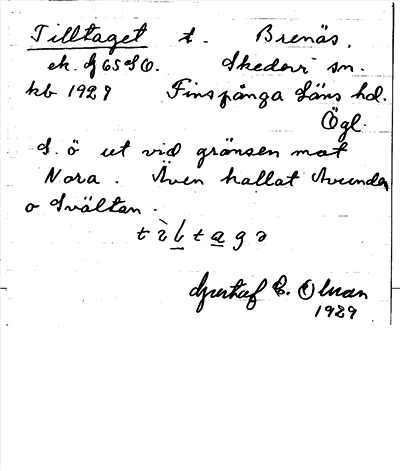 Tilltaget t. Brenäs,
ek. Sj 65 SO. Skedevi sn.
kb 1929 Finspånga läns hd.
Ögl.
S. ö ut vid gränsen mot
Nora. Även kallat Avunda
o Svältan.
t ì l t a g ə
Gustaf E. Olman
1929